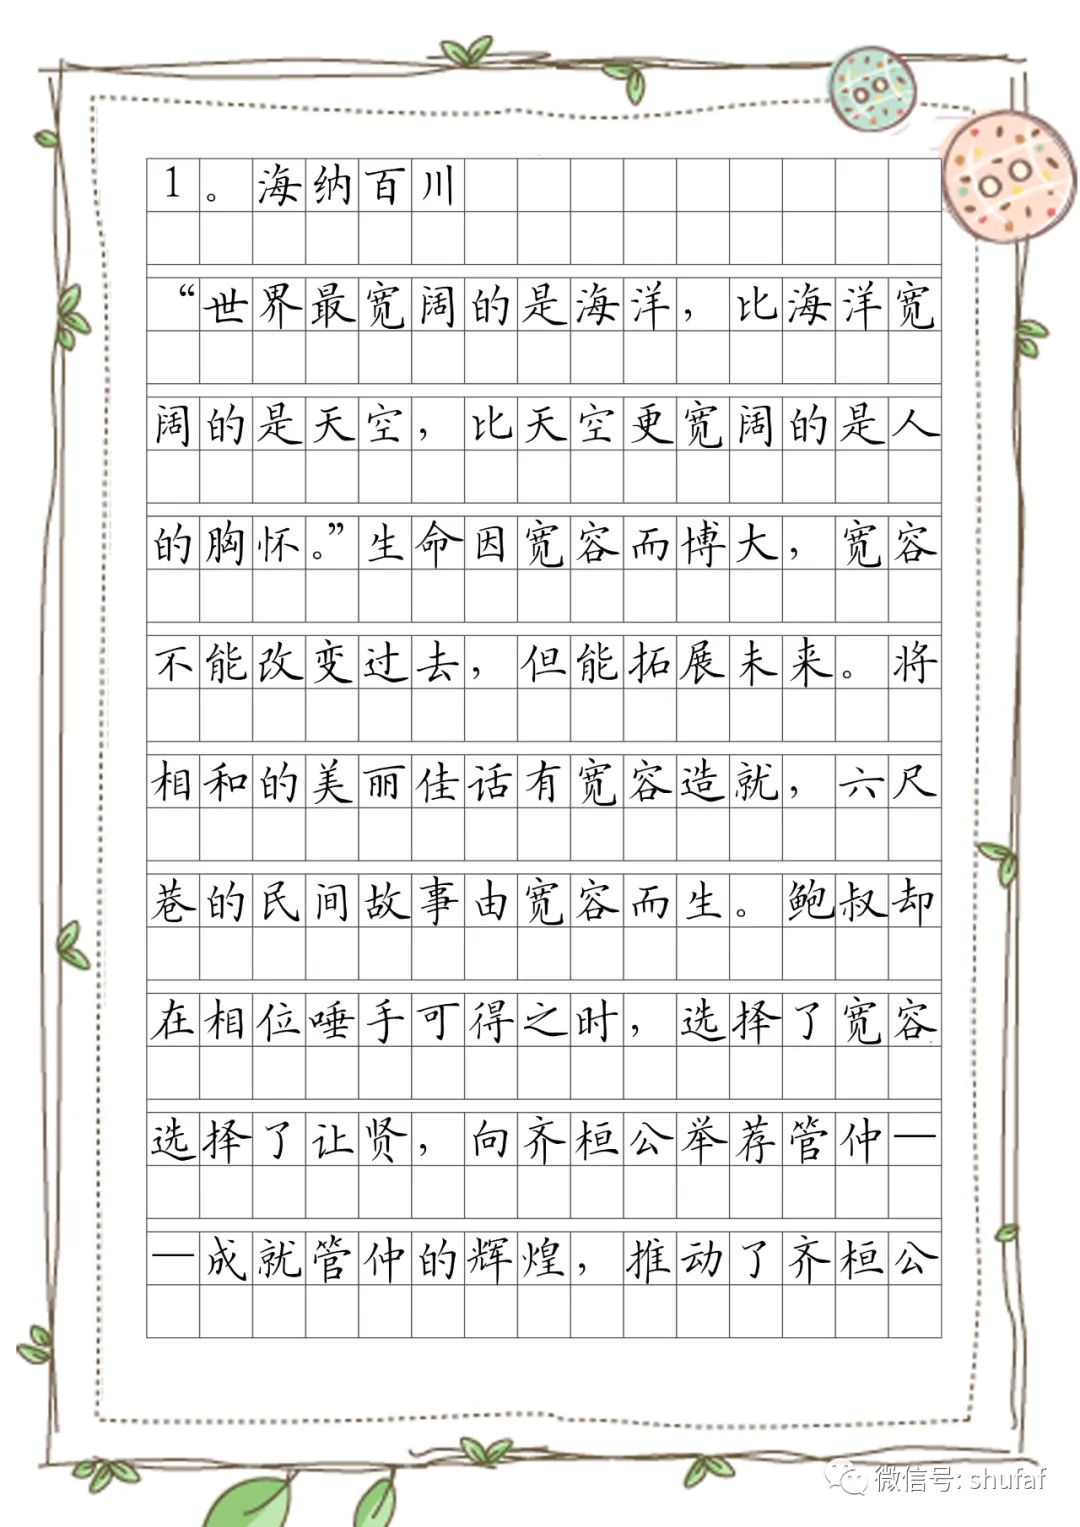 1。海纳百川
“世界最宽阔的是海洋，比海洋宽
阔的是天空，比天空更宽阔的是人
的胸怀。”生命因宽容而博大，宽容
不能改变过去，但能拓展未来。将
相和的美丽佳话有宽容造就，六尺
巷的民间故事由宽容而生。鲍叔却
在相位唾手可得之时，选择了宽容
选择了让贤，向齐桓公举荐管仲—
—成就管仲的辉煌，推动了齐桓公
微信号: shufaf